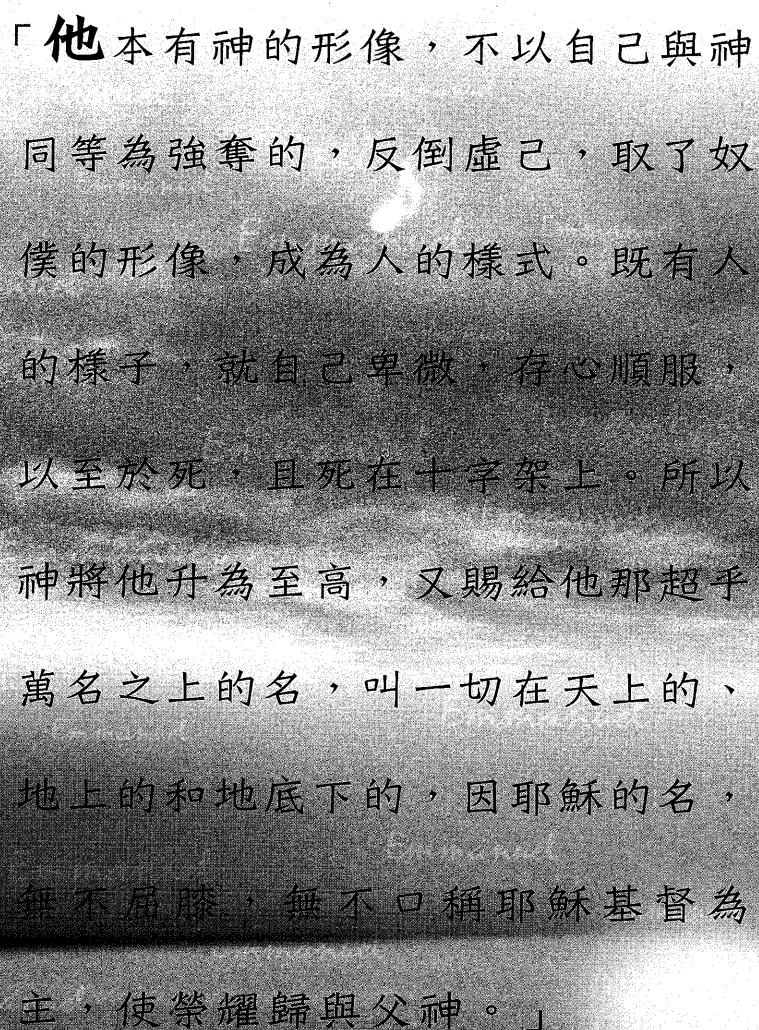 「他本有神的形像，不以自己與神
同等為強奪的，反倒虛己，取了奴
僕的形像，成為人的樣式。既有人
的樣子，就自己卑微，存心順服，
以至於死，且死在十字架上。所以
神將他升為至高，又賜給他那超乎
萬名之上的名，叫一切在天上的、
地上的和地底下的，因耶穌的名，
無不屈膝，無不口稱耶穌基督為
主，使榮耀歸與父神。」
Emmanuel
Emmanuel
Emmanuel
Emmanuel